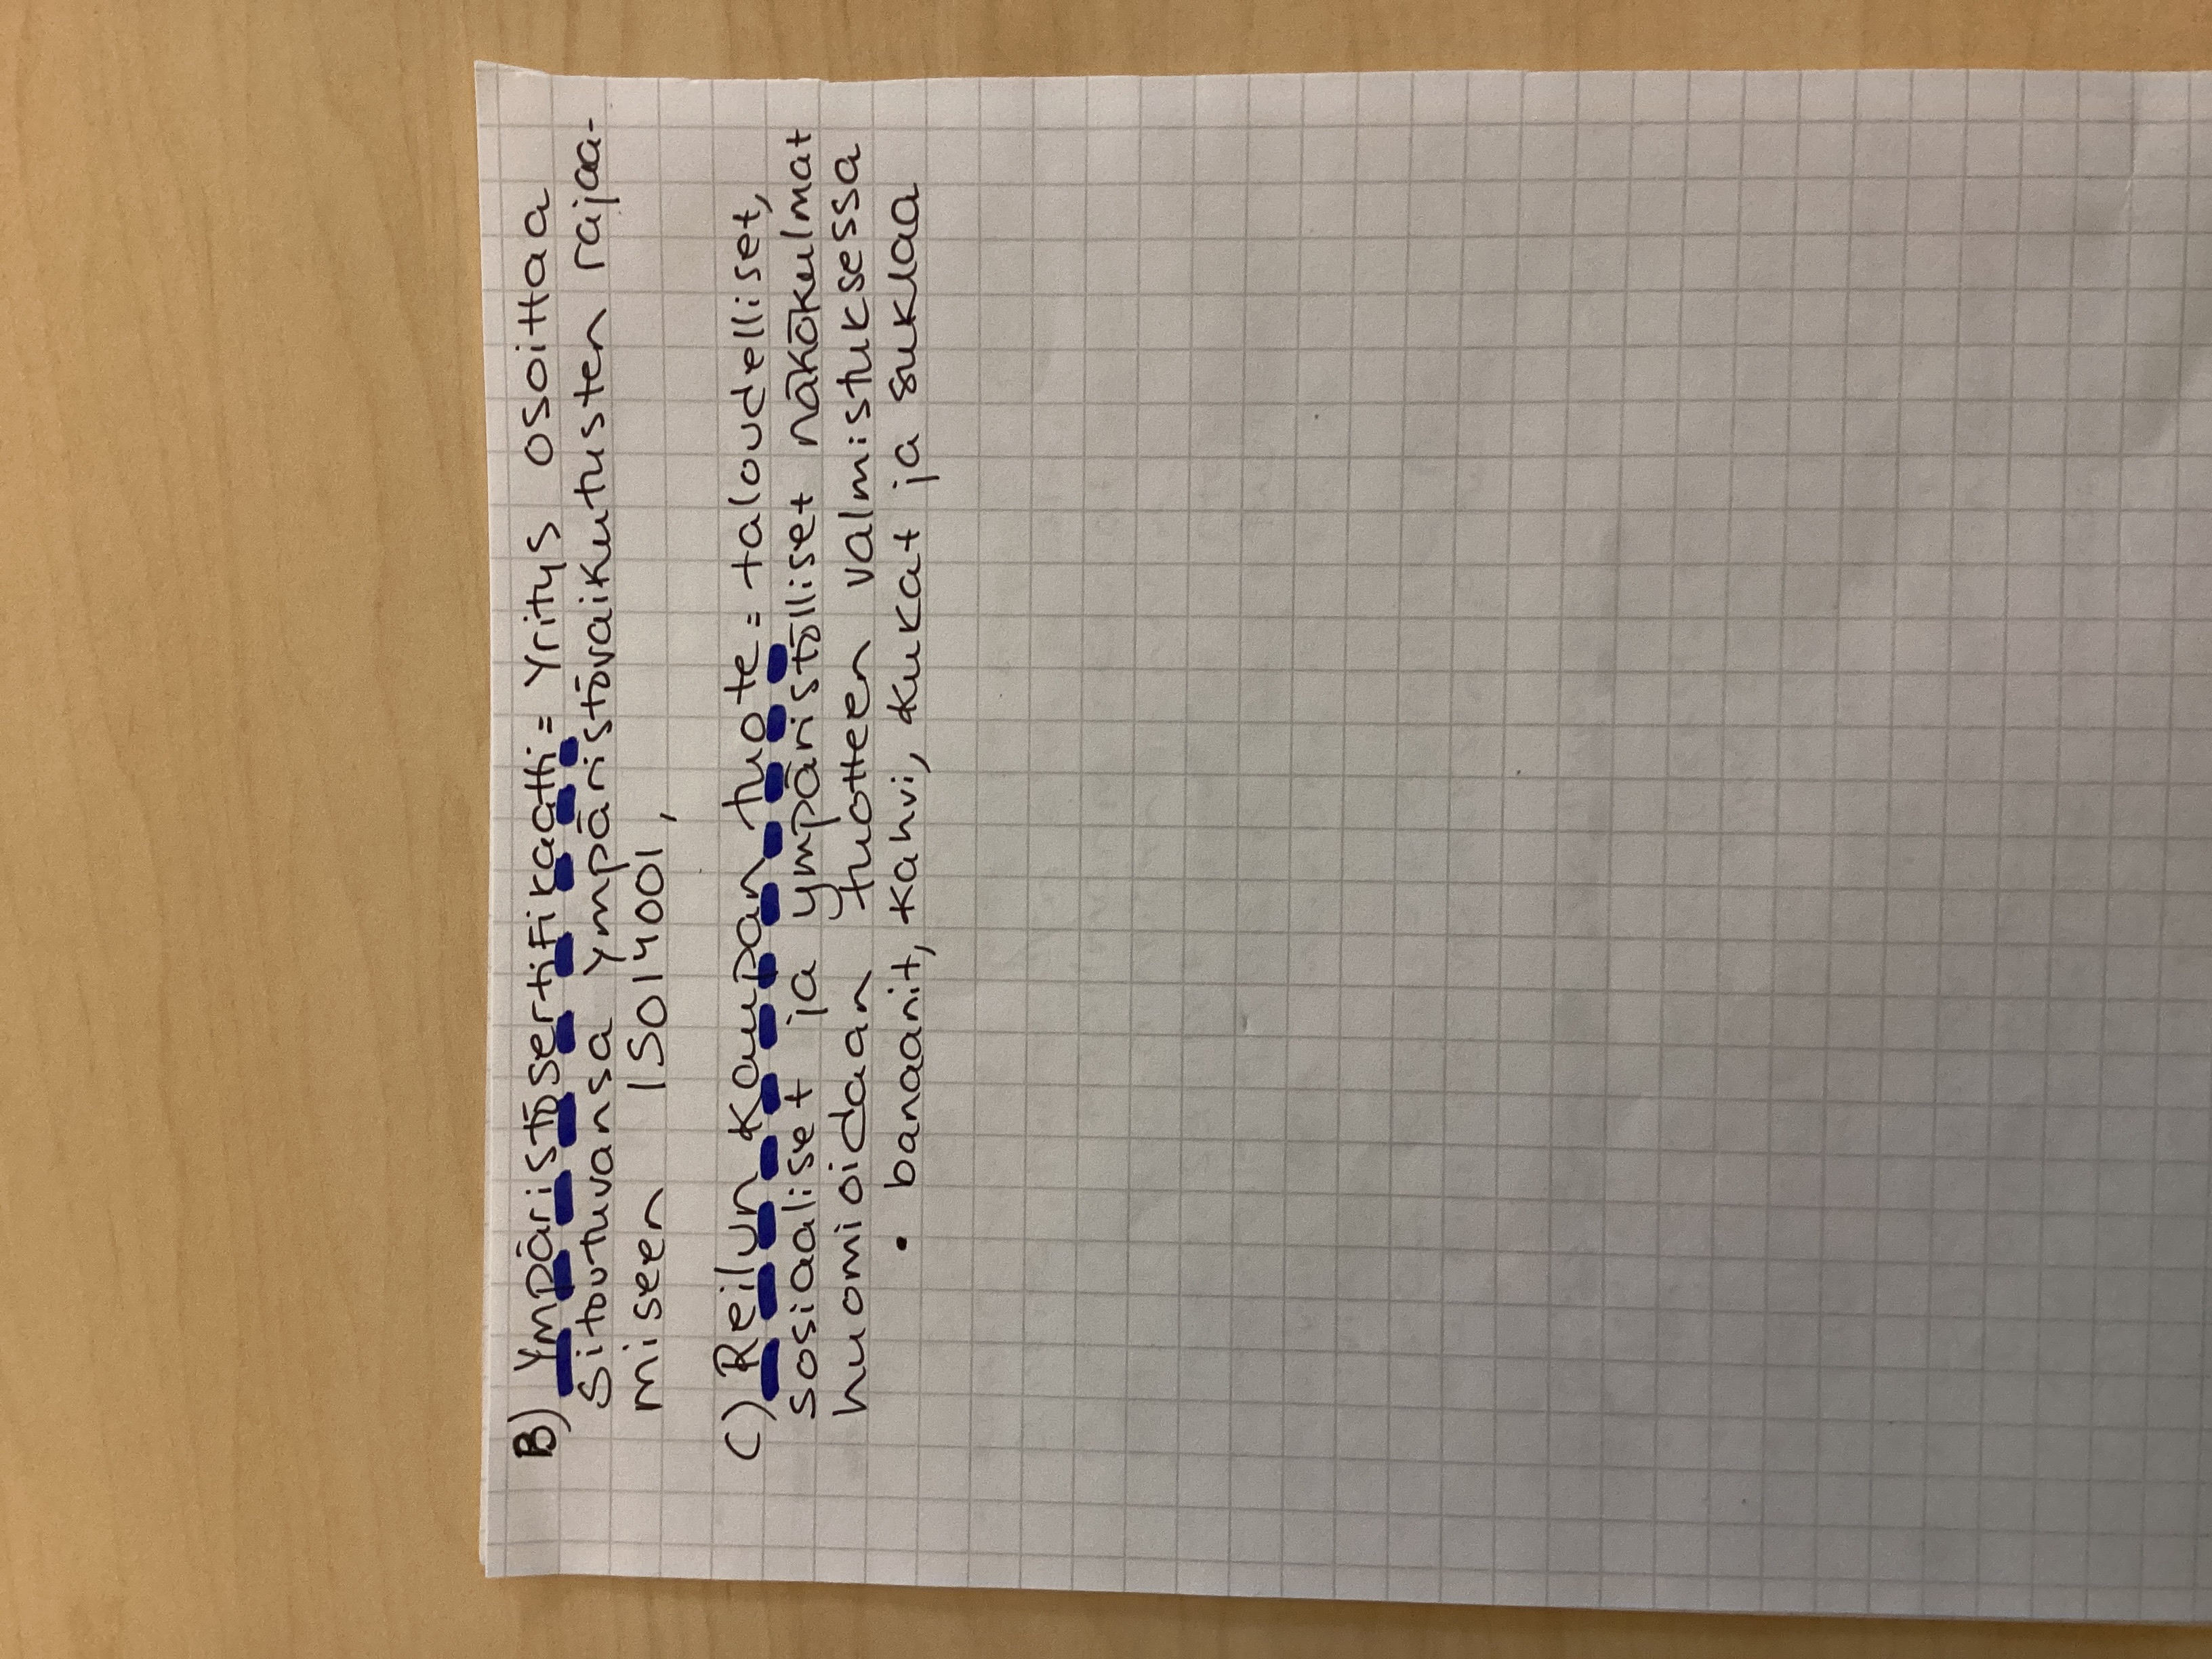 B) Ympäristösertifikaatti = Yritys osoittaa
sitoutuvansa ympäristövaikutusten rajaa-
miseen ISO14001,
C) Reilun kaupan tuote = taloudelliset,
sosiaaliset ja ympäristölliset näkökulmat
huomioidaan tuotteen valmistuksessa
• banaanit, kahvi, kukat ja suklaa